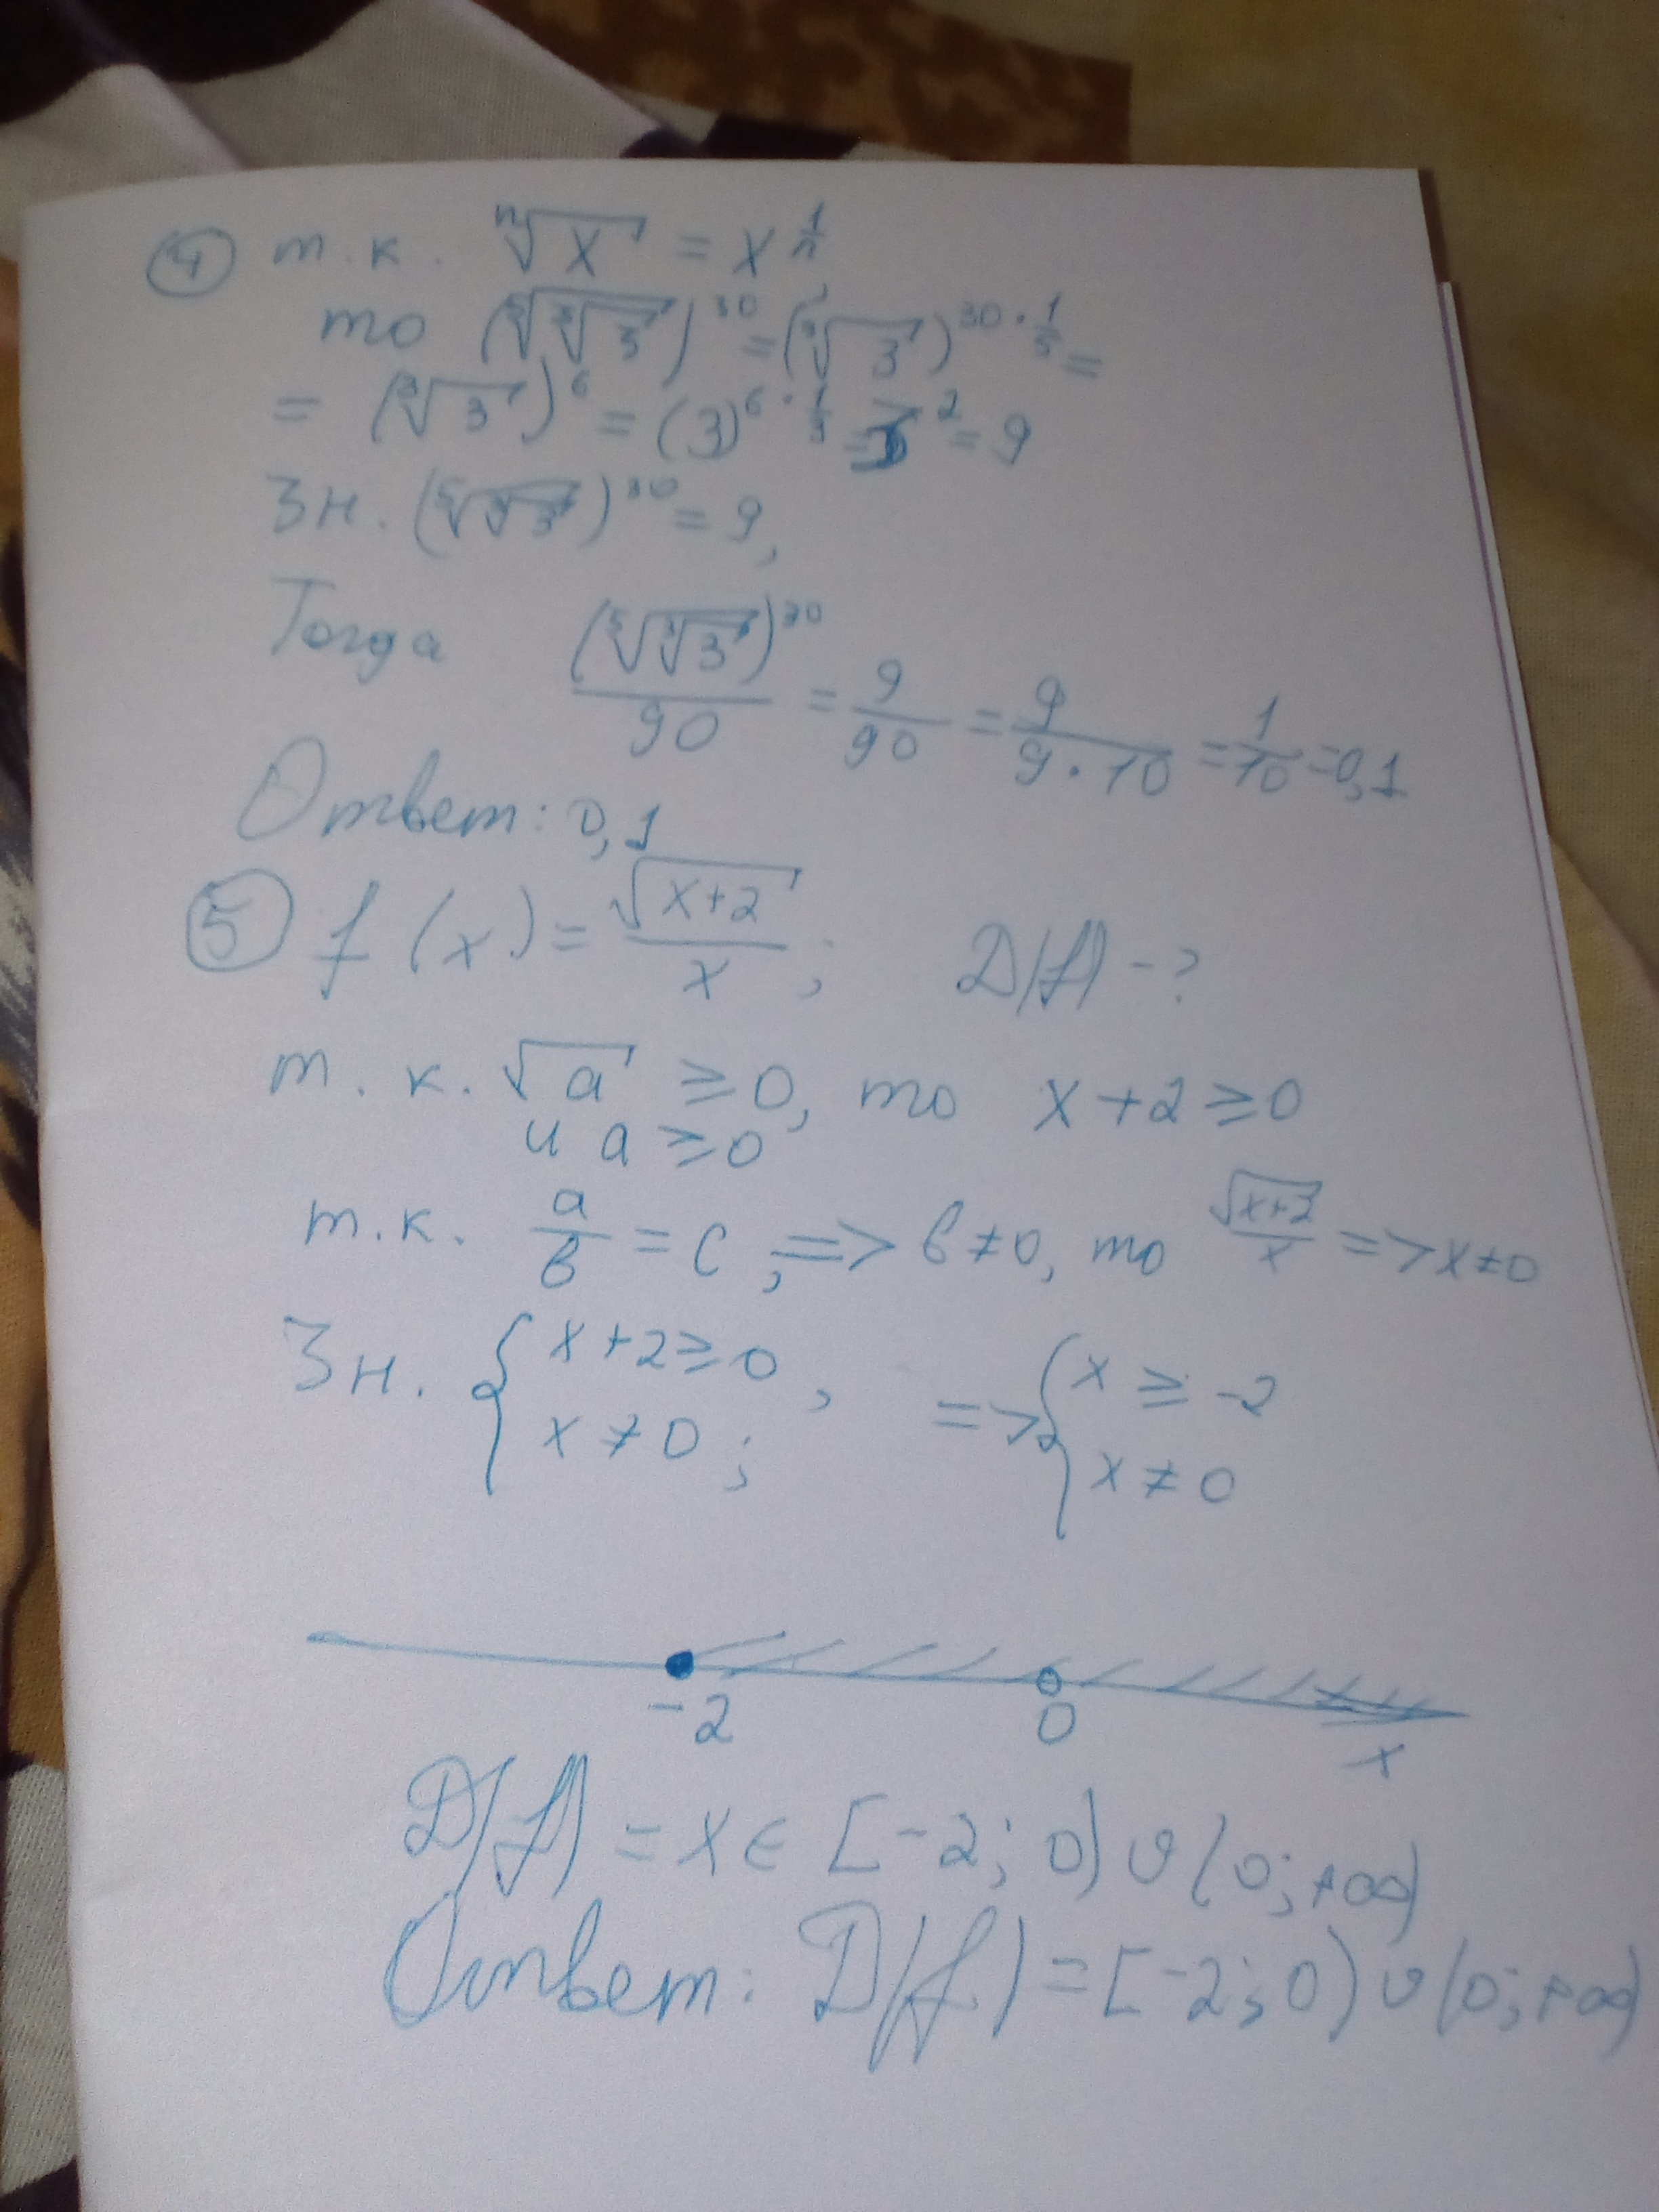 ④ т.к. ⁿ√x = x^(1/n),
то (⁵√(³√3))³⁰ = (³√3)^(30·1/5) =
= (³√3)⁶ = (3)^(6·1/3) = 3² = 9
Зн. (⁵√(³√3))³⁰ = 9,
Тогда (⁵√(³√3))³⁰/90 = 9/90 = 9/(9·10) = 1/10 = 0,1
Ответ: 0,1
⑤ f(x) = √(x+2)/x; D(f) - ?
т.к. √a ≥ 0, то x+2 ≥ 0
и a ≥ 0
т.к. a/b = c, => b ≠ 0, то √(x+2)/x => x ≠ 0
Зн. { x+2 ≥ 0, => { x ≥ -2
x ≠ 0; x ≠ 0
-2 0 x
D(f) = x ∈ [-2; 0) ∪ (0; +∞)
Ответ: D(f) = [-2; 0) ∪ (0; +∞)